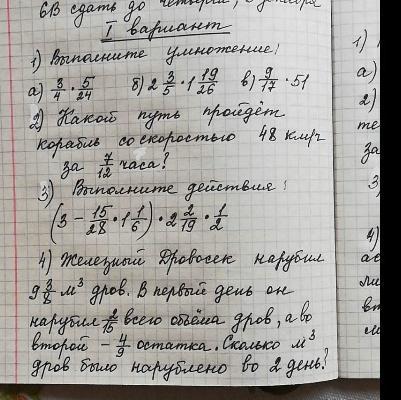 6В сдать до четверга, 8 декабря
I вариант
1) Выполните умножение!
а) 3/4 · 5/24 б) 2 3/5 · 1 19/26 в) 9/17 · 51
2) Какой путь пройдёт
корабль со скоростью 48 км/ч
за 7/12 часа?
3) Выполните действия!
(3 - 15/28 · 1 1/6) · 2 2/19 · 1/2
4) Железный Дровосек нарубил
9 3/8 м³ дров. В первый день он
нарубил 2/15 всего объёма дров, а во
второй - 4/9 остатка. Сколько м³
дров было нарублено во 2 день?
1)
а)
2)
те
за
3)
4)